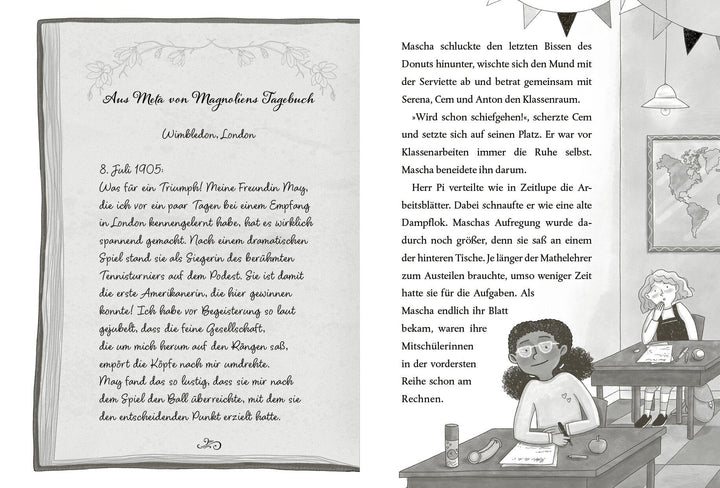 Aus Meta von Magnoliens Tagebuch
Wimbledon, London
8. Juli 1905:
Was für ein Triumph! Meine Freundin May,
die ich vor ein paar Tagen bei einem Empfang
in London kennengelernt habe, hat es wirklich
spannend gemacht. Nach einem dramatischen
Spiel stand sie als Siegerin des berühmten
Tennisturniers auf dem Podest. Sie ist damit
die erste Amerikanerin, die hier gewinnen
konnte! Ich habe vor Begeisterung so laut
gejubelt, dass die feine Gesellschaft,
die um mich herum auf den Rängen saß,
empört die Köpfe nach mir umdrehte.
May fand das so lustig, dass sie mir nach
dem Spiel den Ball überreichte, mit dem sie
den entscheidenden Punkt erzielt hatte.
Mascha schluckte den letzten Bissen des
Donuts hinunter, wischte sich den Mund mit
der Serviette ab und betrat gemeinsam mit
Serena, Cem und Anton den Klassenraum.
»Wird schon schiefgehen!«, scherzte Cem
und setzte sich auf seinen Platz. Er war vor
Klassenarbeiten immer die Ruhe selbst.
Mascha beneidete ihn darum.
Herr Pi verteilte wie in Zeitlupe die Ar-
beitsblätter. Dabei schnaufte er wie eine alte
Dampflok. Maschas Aufregung wurde da-
durch noch größer, denn sie saß an einem
der hinteren Tische. Je länger der Mathelehrer
zum Austeilen brauchte, umso weniger Zeit
hatte sie für die Aufgaben. Als
Mascha endlich ihr Blatt
bekam, waren ihre
Mitschülerinnen
in der vordersten
Reihe schon am
Rechnen.